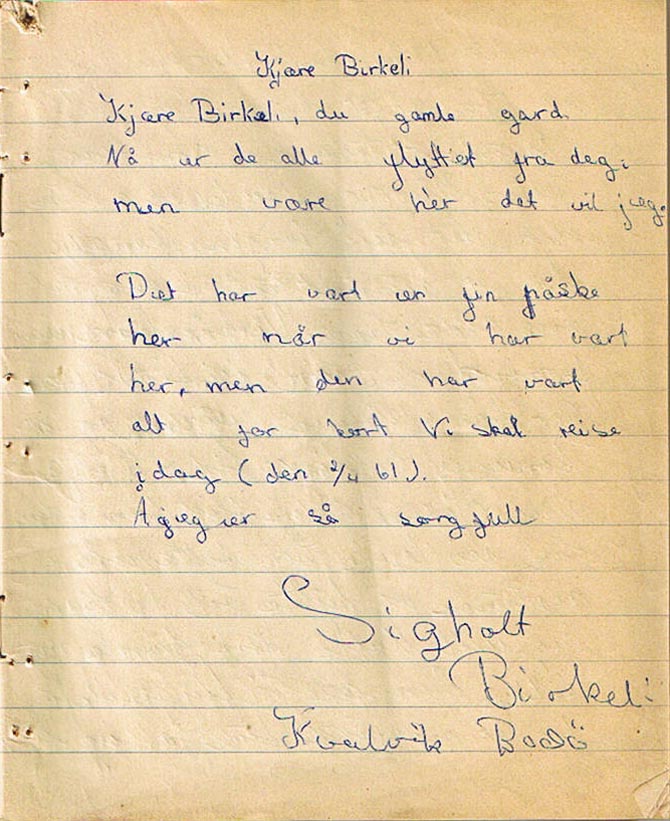 Kjære Birkeli
Kjære Birkeli, du gamle gard.
Nå er de alle flyttet fra deg,
men være her det vil jeg.
Det har vært en fin påske
her når vi har vært
her, men den har vært
alt for kort Vi skal reise
idag (den 2/4 61).
Å jeg er så sorgfull
Sigholt
Birkeli
Kvalvik Bodö